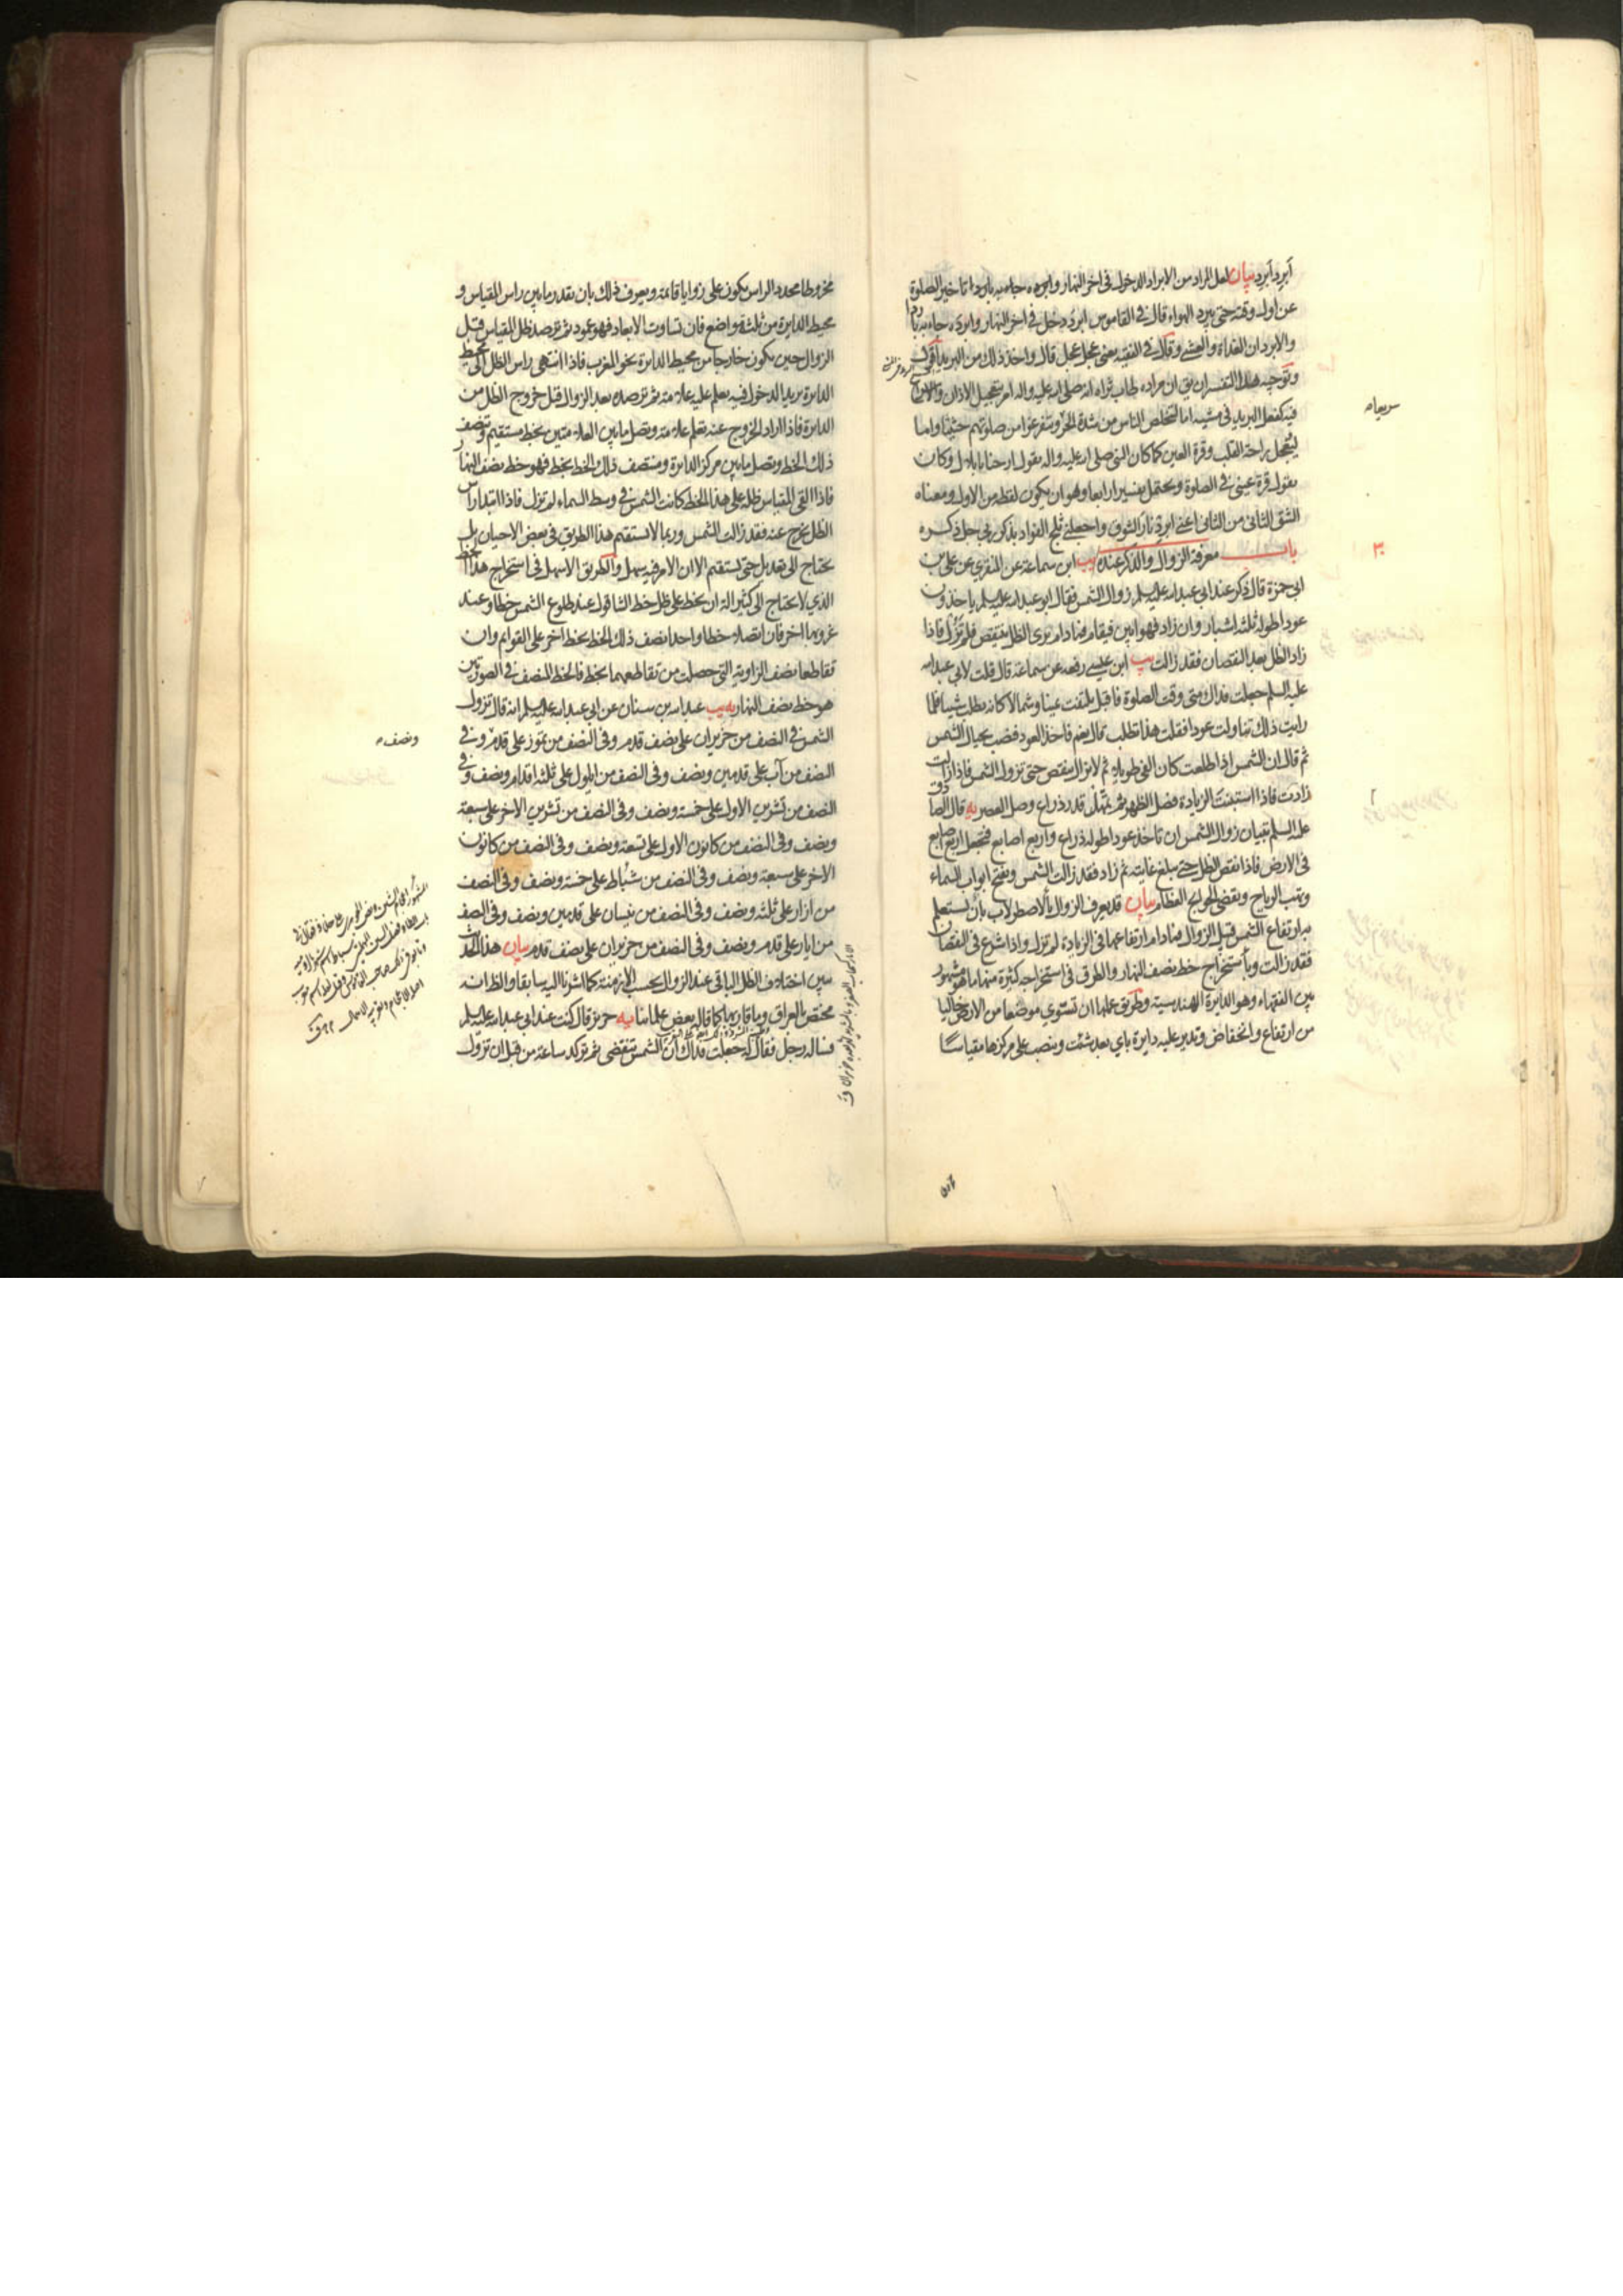 أبرد أبرد بيان لعل المراد من الابراد الدخول في اخر النهار وابرده جاء به باردا تاخير الصلوة
عن اول وقته حتى يبرد الهواء قال في القاموس ابرد دخل في اخر النهار وابرده جاء به باردا
والابردان الغداة والعشي وقال في الفقيه يعني عجل عجل قال واخذ ذلك من البريد اقول
وتوجيه هذا التفسير ان يق ان مراده طاب ثراه انه صلى الله عليه واله امر بتعجيل الاذان والاسراع
فيه كفعل البريد في مشيه اما لتخلص الناس من شدة الحر وتفرغوا من صلوتهم حثيثا واما
ليتعجل راحة القلب وقرة العين كما كان النبي صلى الله عليه واله يقول ارحنا يا بلال وكان
يقول قرة عيني في الصلوة ويحتمل تفسيرا رابعا وهو ان يكون لفظه من الاول ومعناه
الشق الثاني من الثاني اعني ابرد نار الشوق واجعلني ثلج الفواد بذكر ربي جل ذكره
باب معرفة الزوال والذكر عنده يب ابن سماعة عن المنقري عن علي بن
ابي حمزة قال ذكر عند ابي عبد الله عليه السلم زوال الشمس فقال ابو عبد الله عليه السلم ياخذون
عودا طوله ثلثة اشبار وان زاد فهو ابين فيقام فما دام يرى الظل ينقص فلم تزل فاذا
زاد الظل بعد النقصان فقد زالت يب ابن عيسى رفعه عن سماعة قال قلت لابي عبد الله
عليه السلم جعلت فداك متى وقت الصلوة فاقبل يلتفت يمينا وشمالا كانه يطلب شيئا فلما
رايت ذلك تناولت عودا فقلت هذا تطلب قال نعم فاخذ العود فنصب بحيال الشمس
ثم قال ان الشمس اذا طلعت كان الفيء طويلا ثم لا يزال ينقص حتى تزول الشمس فاذا زالت
زادت فاذا استبنت الزيادة فصل الظهر ثم تمهل قدر ذراع وصل العصر يه قال الصادق
عليه السلم تبيان زوال الشمس ان تاخذ عودا طوله ذراع واربع اصابع فتجعل اربع اصابع
في الارض فاذا نقص الظل حتى يبلغ غايته ثم زاد فقد زالت الشمس وتفتح ابواب السماء
وتهب الرياح وتقضى الحوايج العظام بيان قد يعرف الزوال بالاصطرلاب بان يستعلم
به ارتفاع الشمس قبيل الزوال فما دام ارتفاعها في الزيادة لم تزل واذا شرع في النقصان
فقد زالت وباستخراج خط نصف النهار والطرق في استخراجه كثيرة منها ما هو مشهور
بين الفقهاء وهو الدايرة الهندسية وطريق عملها ان تستوي موضعا من الارض خاليا
من ارتفاع وانخفاض وتدير عليه دايرة باي بعد شئت وتنصب على مركزها مقياسا
سريعا ه
٣٠
مخروطا محدد الراس يكون على زوايا قائمة ويعرف ذلك بان تقدر ما بين راس المقياس و
محيط الدايرة من ثلثة مواضع فان تساوت الابعاد فهو عمود ثم ترصد ظل المقياس قبل
الزوال حين يكون خارجا من محيط الدايرة نحو المغرب فاذا انتهى راس الظل الى محيط
الدايرة يريد الدخول فيه يعلم عليه علامة ثم ترصده بعد الزوال قبل خروج الظل من
الدايرة فاذا اراد الخروج عنه تعلم علامة وتصل ما بين العلامتين بخط مستقيم وتنصف
ذلك الخط وتصل ما بين مركز الدايرة ومنتصف ذلك الخط بخط فهو خط نصف النهار
فاذا القى المقياس ظله على هذا الخط كانت الشمس في وسط السماء لم تزل فاذا ابتدا راس
الظل يخرج عنه فقد زالت الشمس وربما لا يستقيم هذا الطريق في بعض الاحيان بل
يحتاج الى تعديل حتى يستقيم الا ان الامر فيه سهل والطريق الاسهل في استخراج هذا الخط
الذي لا يحتاج الى كثير الة ان يخط على ظل خط الشاقول عند طلوع الشمس خطا وعند
غروبها اخر فان اتصلا خطا واحدا نصف ذلك الخط بخط اخر على القوايم وان
تقاطعا نصف الزاوية التي حصلت من تقاطعهما بخط فالخط المنصف في الصورتين
هو خط نصف النهار يه يب عبد الله بن سنان عن ابي عبد الله عليه السلم انه قال تزول
الشمس في النصف من حزيران على نصف قدم وفي النصف من تموز على قدم وفي
النصف من آب على قدمين ونصف وفي النصف من ايلول على ثلثة اقدام ونصف وفي
النصف من تشرين الاول على خمسة ونصف وفي النصف من تشرين الاخر على سبعة
ونصف وفي النصف من كانون الاول على تسعة ونصف وفي النصف من كانون
الاخر على سبعة ونصف وفي النصف من شباط على خمسة ونصف وفي النصف
من اذار على ثلثة ونصف وفي النصف من نيسان على قدمين ونصف وفي النصف
من ايار على قدم ونصف وفي النصف من حزيران على نصف قدم بيان هذا الحديث
يبين اختلاف الظل الباقي عند الزوال بحسب الازمنة كما اشرنا اليه سابقا والظ انه
مختص بالعراق وما قاربها كما قاله بعض علمائنا يه حريز قال كنت عند ابي عبد الله عليه السلم
فساله رجل فقال له جعلت فداك ان الشمس تنقضي ثم تركد ساعة من قبل ان تزول
ونصف ه